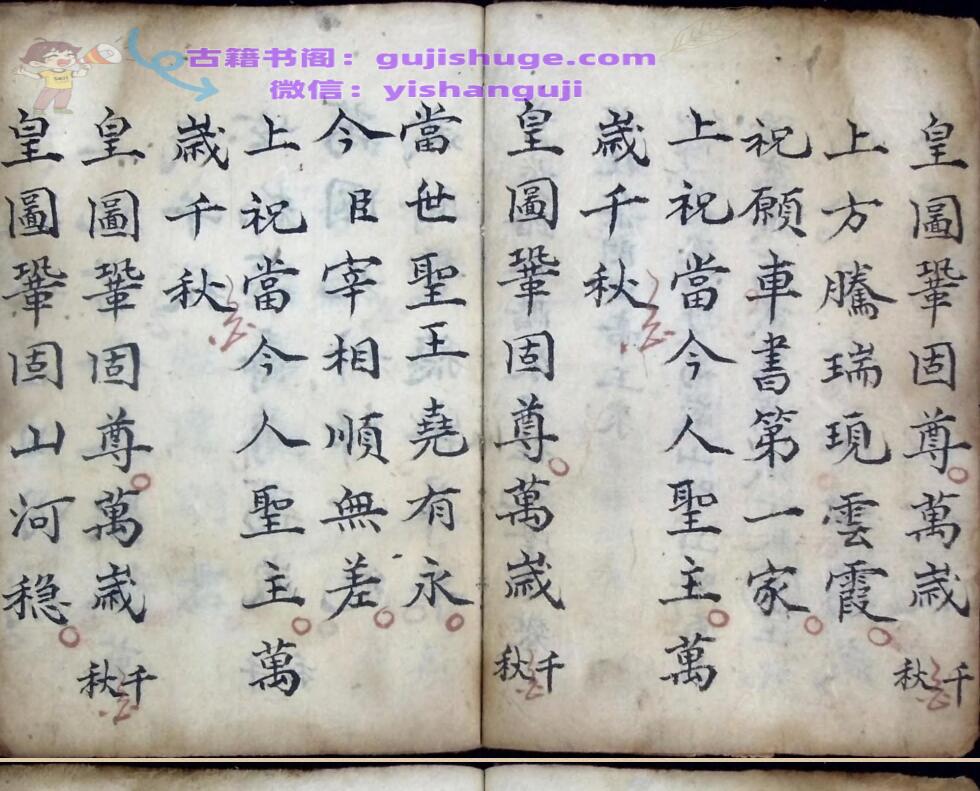 古籍书阁：gujishuge.com
微信：yishanguji
皇圖鞏固尊萬歳千秋
上方騰瑞現雲霞
祝願車書第一家
上祝當今人聖主萬
歳千秋
皇圖鞏固尊萬歳千秋
當世聖王堯有永
今臣宰相順無差
上祝當今人聖主萬
歳千秋
皇圖鞏固尊萬歳千秋
皇圖鞏固山河稳